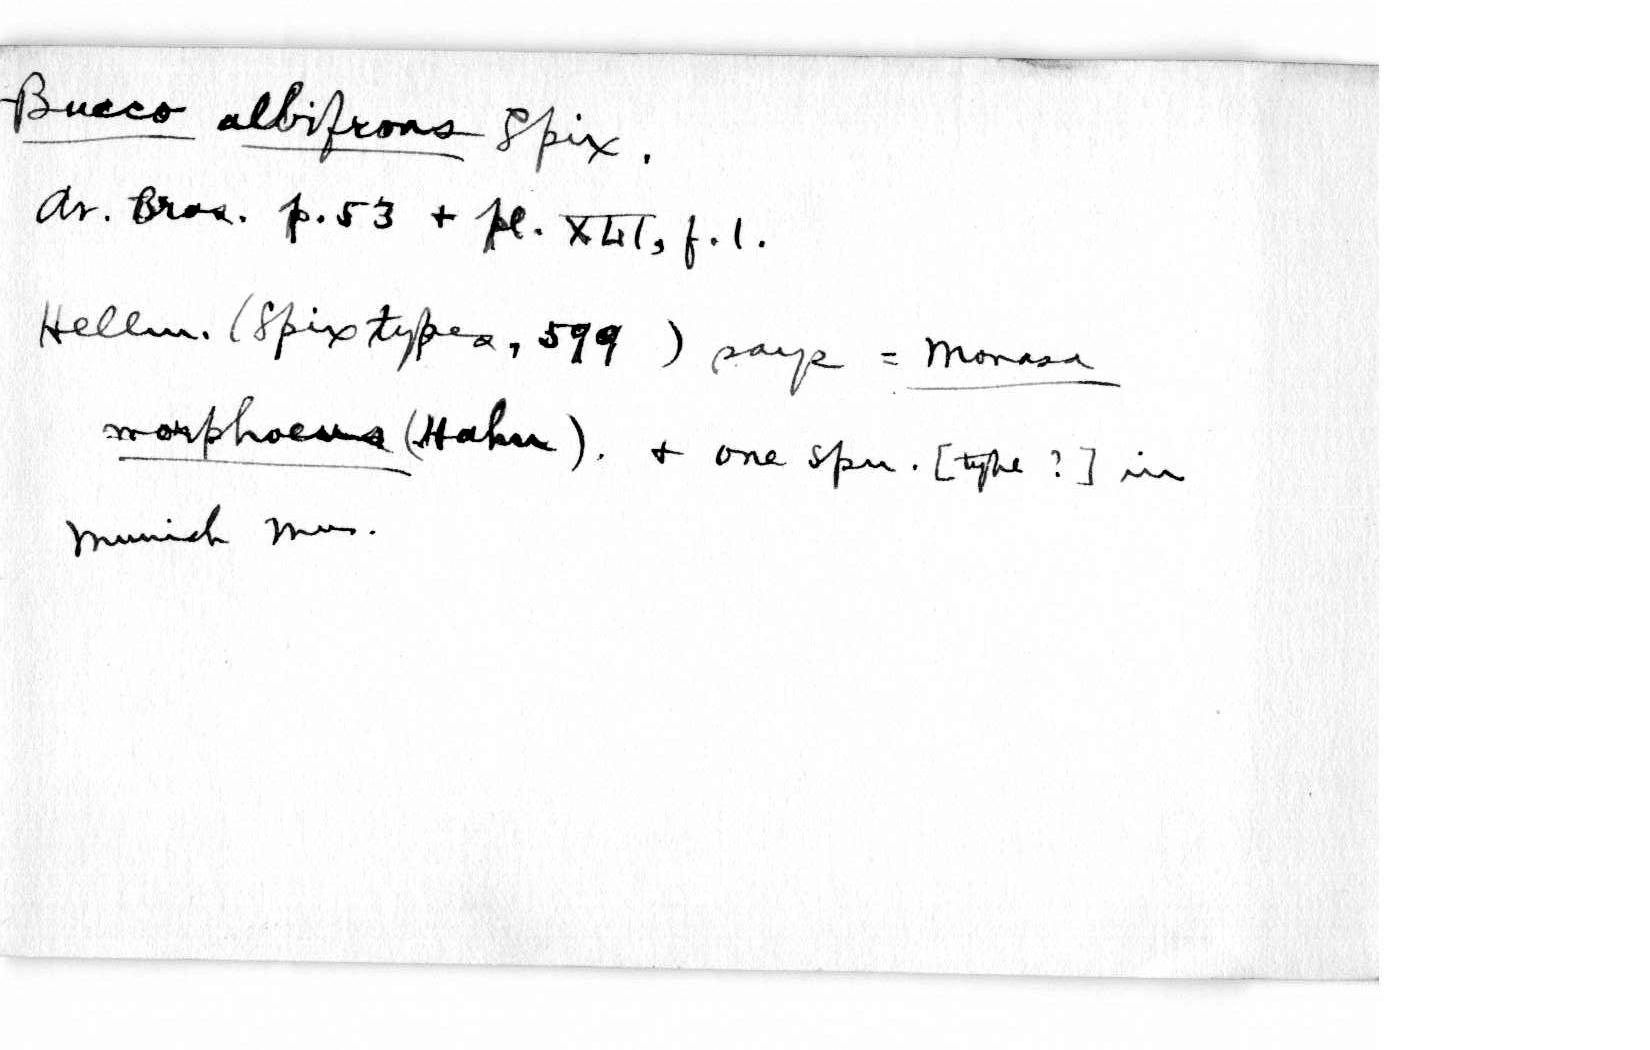 Bucco albifrons Spix.
Av. Bras. p. 53 + pl. XLI, f. 1.
Hellm. (Spix types, 599 ) says = Monasa
morphoeus (Hahn). + one spm. [type ?] in
Munich Mus.